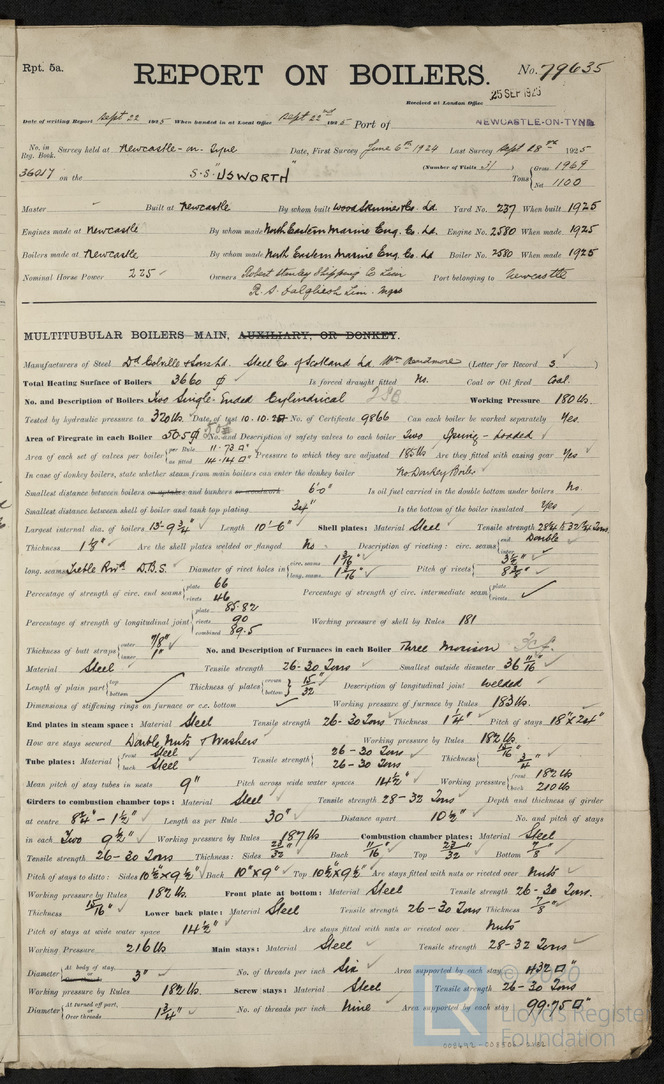 Rpt. 5a.
REPORT ON BOILERS.
No. 79635
Received at London Office 25 SEP 1925
Date of writing Report Sept 22 1925 When handed in at Local Office Sept 22nd 1925 Port of NEWCASTLE-ON-TYNE
No. in Reg. Book. Survey held at Newcastle-on-Tyne Date, First Survey June 6th 1924 Last Survey Sept 1925
36017 on the S.S. "USWORTH" (Number of Visits 31) Tons { Gross 1969 Net 1100
Master Built at Newcastle By whom built Wood Skinner & Co. Ld. Yard No. 237 When built 1925
Engines made at Newcastle By whom made North Eastern Marine Eng. Co. Ld Engine No. 2580 When made 1925
Boilers made at Newcastle By whom made North Eastern Marine Eng. Co. Ld Boiler No. 2580 When made 1925
Nominal Horse Power 225 Owners Robert Stanley Shipping Co Lim Port belonging to Newcastle
R. S. Dalgliesh Lim. Mgrs
MULTITUBULAR BOILERS MAIN, AUXILIARY, OR DONKEY.
Manufacturers of Steel Dd Colville & Sons Ld. Steel Co. of Scotland Ld. Wm Beardmore (Letter for Record S)
Total Heating Surface of Boilers 3660 Is forced draught fitted No. Coal or Oil fired Coal.
No. and Description of Boilers Two Single-Ended Cylindrical Working Pressure 180 lbs.
Tested by hydraulic pressure to 320 lbs. Date of test 10.10.25 No. of Certificate 9866 Can each boiler be worked separately Yes.
Area of Firegrate in each Boiler 50.5 No. and Description of safety valves to each boiler Two Spring-Loaded
Area of each set of valves per boiler { per Rule 11.73 □" as fitted 14.14 □" Pressure to which they are adjusted 185 lbs Are they fitted with easing gear Yes
In case of donkey boilers, state whether steam from main boilers can enter the donkey boiler No Donkey Boiler
Smallest distance between boilers or uptakes and bunkers or woodwork 6'-0" Is oil fuel carried in the double bottom under boilers No
Smallest distance between shell of boiler and tank top plating 34" Is the bottom of the boiler insulated Yes
Largest internal dia. of boilers 13'-9 3/4" Length 10'-6" Shell plates: Material Steel Tensile strength 28 1/4 to 32 1/4 Tons
Thickness 1 1/8" Are the shell plates welded or flanged No. Description of riveting: circ. seams { end Double inter.
long. seams Treble Rivtd D.B.S. Diameter of rivet holes in { circ. seams 1 3/16" long. seams 1 3/16" Pitch of rivets { 3 1/2" 8 3/8"
Percentage of strength of circ. end seams { plate 66 rivets 46 Percentage of strength of circ. intermediate seam { plate rivets
Percentage of strength of longitudinal joint { plate 85.82 rivets 90 combined 89.5 Working pressure of shell by Rules 181
Thickness of butt straps { outer 7/8" inner 1" No. and Description of Furnaces in each Boiler Three Morison
Material Steel Tensile strength 26-30 Tons Smallest outside diameter 36 11/16"
Length of plain part { top bottom Thickness of plates { crown bottom 15/32" Description of longitudinal joint Welded
Dimensions of stiffening rings on furnace or c.c. bottom Working pressure of furnace by Rules 183 lbs.
End plates in steam space: Material Steel Tensile strength 26-30 Tons Thickness 1 1/4" Pitch of stays 18" x 24"
How are stays secured Double Nuts & Washers Working pressure by Rules 182 lbs
Tube plates: Material { front Steel back Steel Tensile strength { 26-30 Tons 26-30 Tons Thickness { 15/16" 3/4"
Mean pitch of stay tubes in nests 9" Pitch across wide water spaces 14 1/2" Working pressure { front 182 lbs back 210 lbs
Girders to combustion chamber tops: Material Steel Tensile strength 28-32 Tons Depth and thickness of girder
at centre 8 3/4" - 1 1/2" Length as per Rule 30" Distance apart 10 1/2" No. and pitch of stays
in each Two 9 1/2" Working pressure by Rules 187 lbs Combustion chamber plates: Material Steel
Tensile strength 26-30 Tons Thickness: Sides 23/32" Back 11/16" Top 23/32" Bottom 7/8"
Pitch of stays to ditto: Sides 10 1/2" x 9 1/2" Back 10" x 9" Top 10 1/2" x 9 1/2" Are stays fitted with nuts or riveted over Nuts
Working pressure by Rules 182 lbs. Front plate at bottom: Material Steel Tensile strength 26-30 Tons.
Thickness 15/16" Lower back plate: Material Steel Tensile strength 26-30 Tons Thickness 7/8"
Pitch of stays at wide water space 14 1/2" Are stays fitted with nuts or riveted over. Nuts
Working Pressure 216 lbs Main stays: Material Steel Tensile strength 28-32 Tons
Diameter { At body of stay, or Over threads 3" No. of threads per inch Six Area supported by each stay 432 □"
Working pressure by Rules 182 lbs. Screw stays: Material Steel Tensile strength 26-30 Tons
Diameter { At turned off part, or Over threads 1 3/4" No. of threads per inch Nine Area supported by each stay 99.75 □"
© 2020
LR Lloyd's Register
Foundation